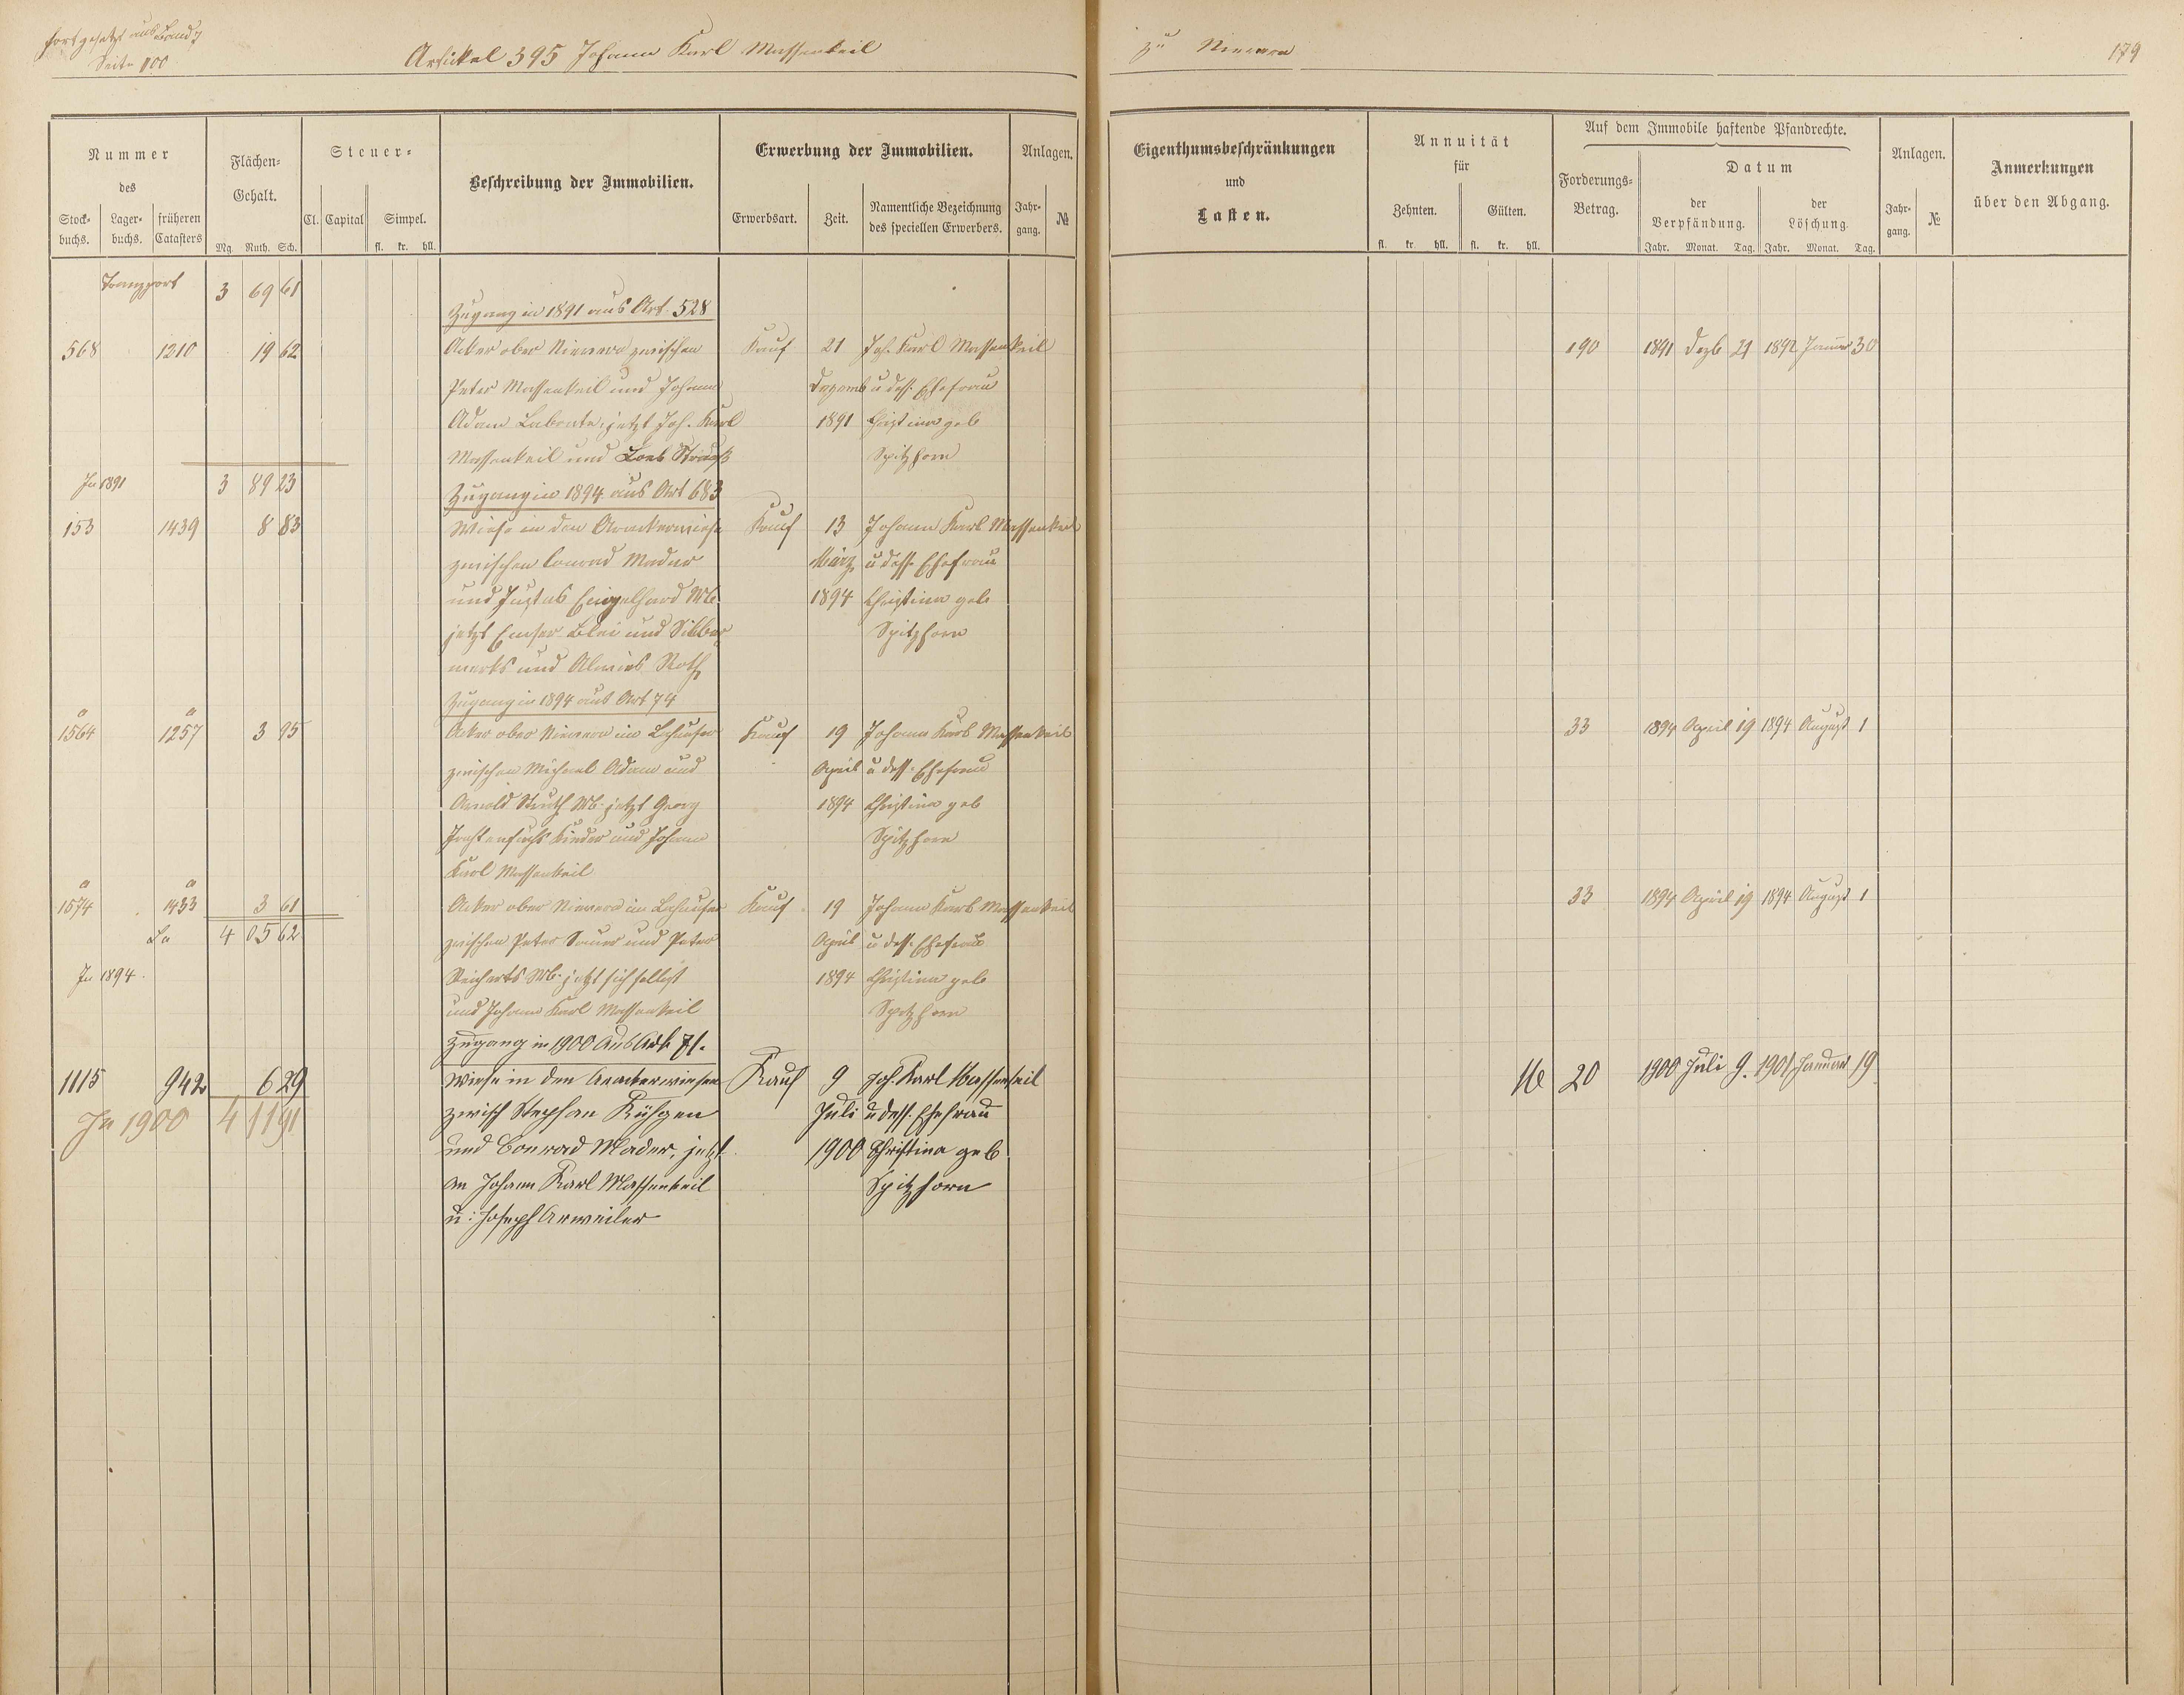 fortgesetzt aus Band 7
Seite 100
Artikel 395 Johann Karl Massenkeil
zu Nievern
179
Nummer
des
Stock-
buchs.
Lager-
buchs.
früheren
Catasters
Flächen-
Gehalt.
Mg. Ruth. Sch.
Steuer-
Cl. Capital
Simpel.
fl. kr. hll.
Beschreibung der Immobilien.
Erwerbung der Immobilien.
Erwerbsart.
Zeit.
Namentliche Bezeichnung
des speciellen Erwerbers.
Anlagen.
Jahr-
gang.
№
Eigenthumsbeschränkungen
und
Lasten.
Annuität
für
Zehnten.
Gülten.
fl. kr. hll. fl. kr. hll.
Auf dem Immobile haftende Pfandrechte.
Forderungs-
Betrag.
Datum
der
Verpfändung.
der
Löschung.
Jahr. Monat. Tag. Jahr. Monat. Tag.
Anlagen.
Jahr-
gang.
№
Anmerkungen
über den Abgang.
Transport 3 69 61
Zugang in 1891 aus Art. 528
568 1210 19 62 Acker ober Nievern zwischen Kauf 21 Joh. Karl Massenkeil 190 1891 Dezb 21 1892 Januar 30
Peter Massenkeil und Johann Dezemb u dess. Ehefrau
Adam Labonte, jetzt Joh. Karl 1891 Christina geb
Massenkeil und Loeb Strauß Spitzhorn
In 1891 3 89 23
Zugang in 1894 aus Art 683
153 1439 8 83 Wiese in den Aracker­wiese Kauf 13 Johann Karl Massenkeil
zwischen Conrad Mader März u dess. Ehefrau
und Justus Engelhard Wb. 1894 Christina geb
jetzt Emser Blei und Silber Spitzhorn
werks und Roth
Zugang in 1894 aus Art 74
a a
1564 1257 3 95 Acker ober Nievern im Kauf 19 Johann Karl Massenkeil 33 1894 April 19 1894 August 1
zwischen Michael Adam und April u dess. Ehefrau
Arnold Struth Wb. jetzt Georg 1894 Christina geb
Kinder und Johann Spitzhorn
Karl Massenkeil
a a
1574 1433 3 61 Acker ober Nievern im Kauf 19 Johann Karl Massenkeil 33 1894 April 19 1894 August 1
Sa 4 05 62 zwischen Peter Sauer und Peter April u dess. Ehefrau
In 1894. Reicherts Wb. jetzt sich selbst 1894 Christina geb
und Johann Karl Massenkeil Spitzhorn
Zugang in 1900 aus Art. 71.
1115 942 6 29 Wiese in den Arackerwiesen Kauf 9 Joh. Karl Massenkeil M 20 1900 Juli 9. 1901 Januar 19
In 1900 4 11 91 zwisch Stephan Kühgen Juli u dess. Ehefrau
und Conrad Mader, jetzt 1900 Christina geb
an Johann Karl Massenkeil Spitzhorn
u: Joseph Arweiler